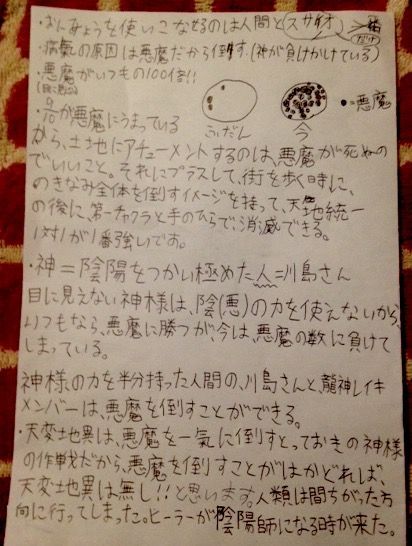 ・おんみょうを使いこなせるのは人間と(スサノオ)だけ
・病気の原因は悪魔だから倒す。(神が負けかけている)
・悪魔がいつもの100倍!!
(目に見えない
9/10が悪魔にうまっている
ふだん
今
●=悪魔
から、土地にアチューメントするのは、悪魔が死ぬの
でいいこと。それにプラスして、街を歩く時に、
のきなみ全体を倒すイメージを持って、天地統一
の後に、第一チャクラと手のひらで、消滅できる。
1対1が1番強いです。
・神=陰陽をつかい極めた人=川島さん
目に見えない神様は、陰(悪)の力を使えないから、
いつもなら、悪魔に勝つが、今は、悪魔の数に負けて
しまっている。
神様の力を半分持った人間の、川島さんと、龍神レイキ
メンバーは、悪魔を倒すことができる。
・天変地異は、悪魔を一気に倒すとっておきの神様
の作戦だから、悪魔を倒すことがはかどれば、
天変地異は無し!!と思います。人類は間ちがった方
向に行ってしまった。ヒーラーが陰陽師になる時が来た。